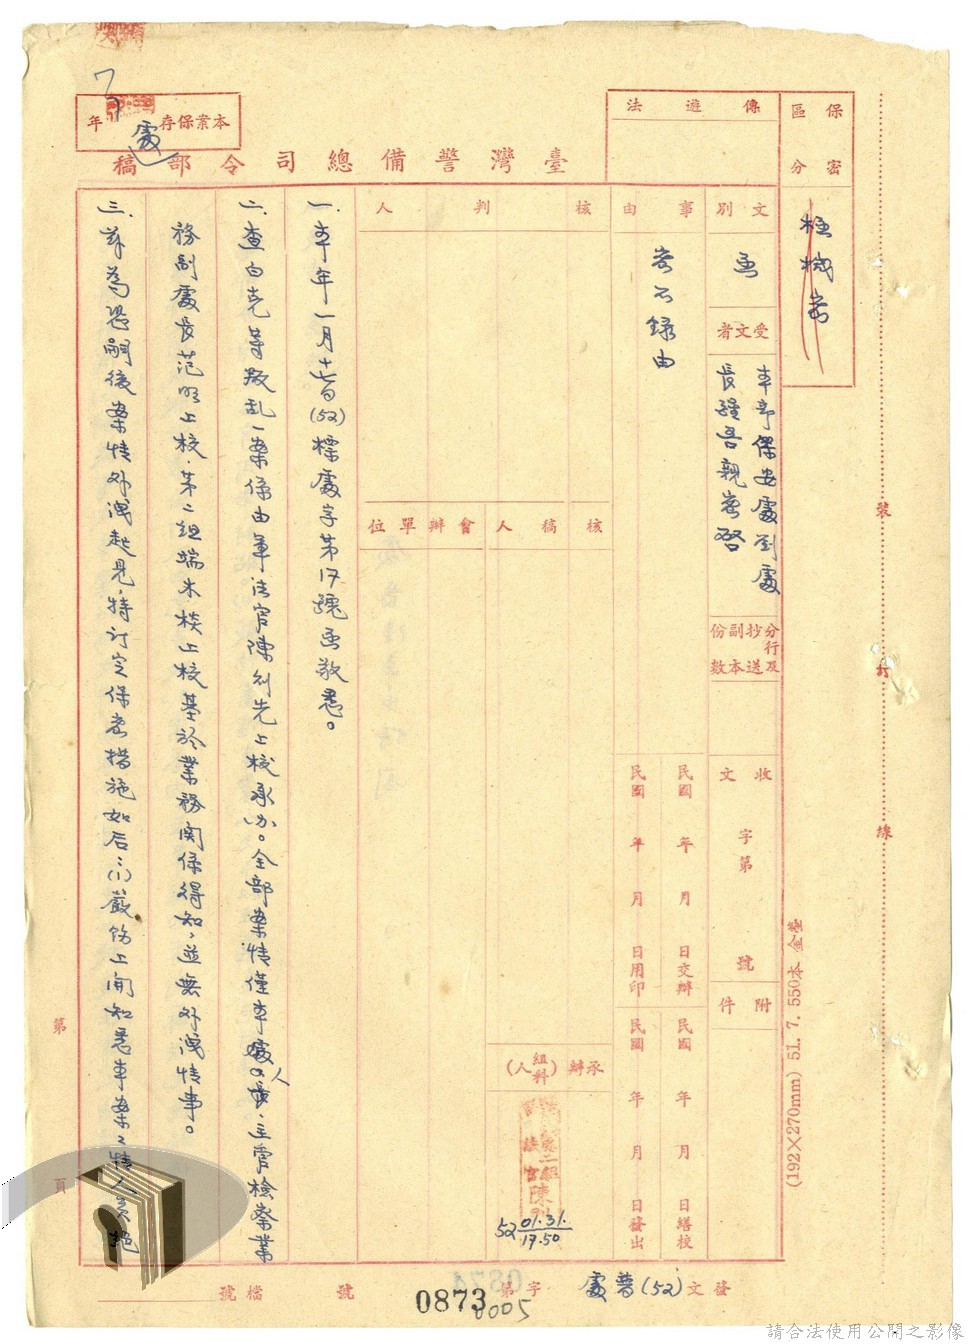 保密
區分
極機密
傳遞法
本案保存　年
臺灣警備總司令部稿
文別
函
受文者
本部保安處劉處
長醒吾親密啓
分行及抄送副本份數
收文　字第　號
附件
事由
密不錄由
民國　年　月　日交辦
民國　年　月　日繕校
民國　年　月　日用印
民國　年　月　日發出
核判人
核稿人
會辦單位
承辦(組科人)
52 01.31. 17.50
一.本年一月廿八日(52)標處字第17號函敬悉。
二.查白克等叛乱一案係由軍法官陳列先上校承办。全部案情僅本處處長、主管檢察業
務副處長范明上校、第二組端木棪上校基於業務関係得知,並無外洩情事。
三.茲為恐嗣後案情外洩起見,特订定保密措施如后:(1)嚴飭上開知悉本案之情人員絕
發文(52)處普字第　號
檔號
0873
0005
第　頁
裝
訂
線
(192×270mm) 51. 7. 550本 金臺
請合法使用公開之影像